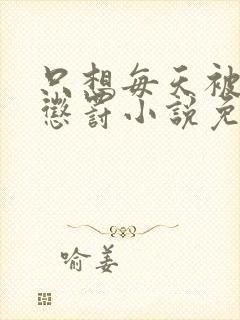 只想每天被
懲罰小說免
喻姜